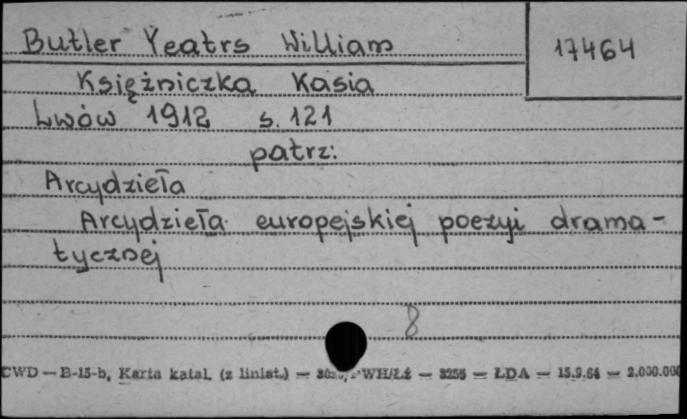 Butler Yeatrs William 17464
Księżniczka Kasia
Lwów 1912 s. 121
patrz:
Arcydzieła
Arcydzieła europejskiej poezyi drama-
tycznej
8
CWD — B-15-b, Karta katal. (z liniat.) — PWH/Łź — 3255 — ŁDA — 15.9.64 — 2.000.000